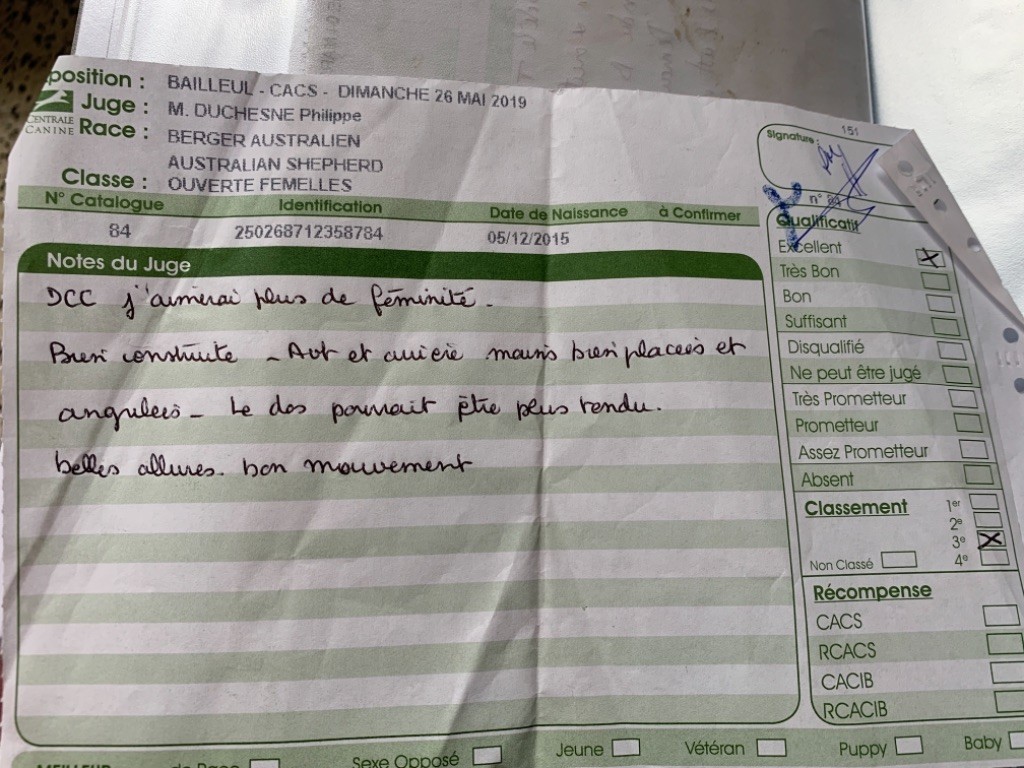 position : BAILLEUL - CACS - DIMANCHE 26 MAI 2019
Juge : M. DUCHESNE Philippe
CENTRALE
CANINE
Race : BERGER AUSTRALIEN
AUSTRALIAN SHEPHERD
Classe : OUVERTE FEMELLES
Signature 151
n° 84
N° Catalogue Identification Date de Naissance à Confirmer
84 250268712358784 05/12/2015
Notes du Juge
DCC j'aimerai plus de féminité.
Bien construite - Avt et arrière mains bien placées et
angulées - Le dos pourrait être plus tendu.
belles allures. bon mouvement
Qualificatif
Excellent
Très Bon
Bon
Suffisant
Disqualifié
Ne peut être jugé
Très Prometteur
Prometteur
Assez Prometteur
Absent
Classement 1er
2e
3e
Non Classé 4e
Récompense
CACS
RCACS
CACIB
RCACIB
MEILLEUR de Race Sexe Opposé Jeune Vétéran Puppy Baby